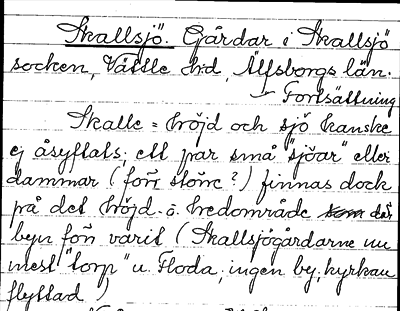 Skallsjö. Gårdar i Skallsjö
socken, Vättle hd, Älfsborgs län.
Fortsättning
Skalle = höjd och sjö kanske
ej åsyftats; ett par små "sjöar" eller
dammar (förr större?) finnas dock
på det höjd- o. hedområde som där
byn förr varit (Skallsjögårdarne nu
mest "torp" u. Floda; ingen by, kyrkan
flyttad)